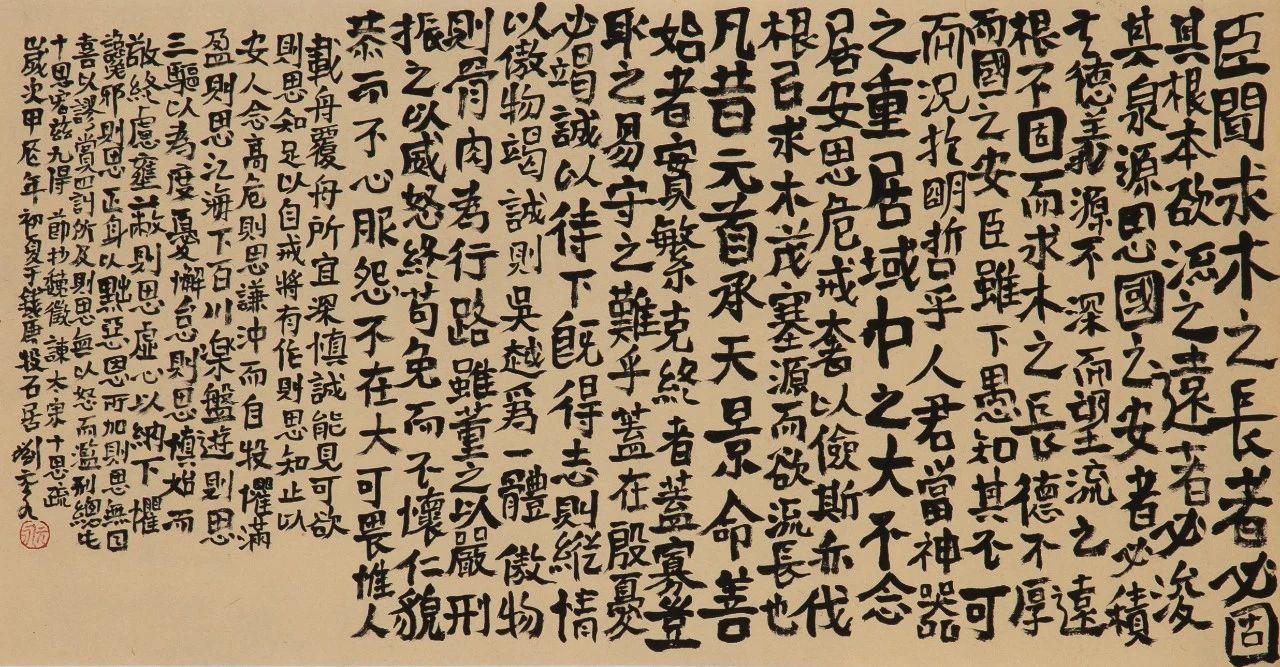 臣聞求木之長者必固
其根本欲流之遠者必浚
其泉源思國之安者必積
其德義源不深而望流之遠
根不固而求木之長德不厚
而國之安臣雖下愚知其不可
而況於明哲乎人君當神器
之重居域中之大不念
居安思危戒奢以儉斯亦伐
根以求木茂塞源而欲流長也
凡昔元首承天景命善
始者實繁克終者蓋寡豈
取之易守之難乎蓋在殷憂
必竭誠以待下既得志則縱情
以傲物竭誠則吳越爲一體傲物
則骨肉為行路雖董之以嚴刑
振之以威怒終苟免而不懷仁貌
恭而不心服怨不在大可畏惟人
載舟覆舟所宜深慎誠能見可欲
則思知足以自戒將有作則思知止以
安人念高危則思謙沖而自牧懼滿
盈則思江海下百川樂盤遊則思
三驅以為度憂懈怠則思慎始而
敬終慮壅蔽則思虛心以納下懼
讒邪則思正身以黜惡恩所加則思無因
喜以謬賞罰所及則思無以怒而濫刑總此
十思宏茲九得 節抄魏徵諫太宗十思疏
歲次甲辰年初夏于錢唐投石居 劉